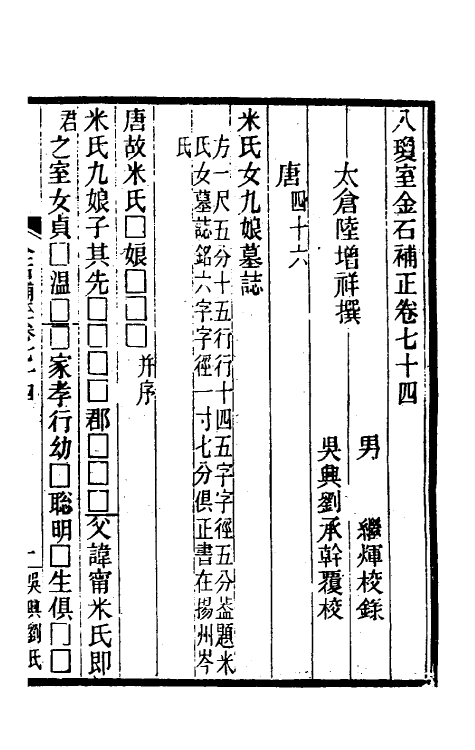 八瓊室金石補正卷七十四
太倉陸增祥撰
男　繼煇校錄
吳興劉承幹覆校
唐四十六
米氏女九娘墓誌
方一尺五分十五行行十四五字字徑五分葢題米
氏女墓誌銘六字字徑一寸七分俱正書在揚州岑
氏
唐故米氏□娘□□□并序
米氏九娘子其先□□□□郡□□□父諱甯米氏即
君之室女貞□温□□家孝行幼□聡明□生俱□□
一　吳興劉氏